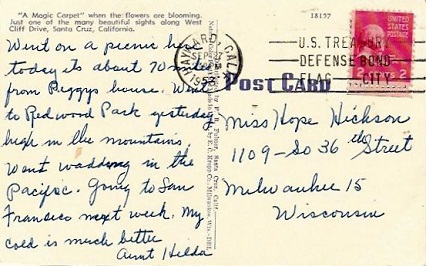 "A Magic Carpet" when the flowers are blooming.
Just one of the many beautiful sights along West
Cliff Drive, Santa Cruz, California.
Went on a picnic here
today its about 70 mi
from Peggys house. Went
to Redwood Park yesterday
high in the mountains
Went wadding in the
Pacific. Going to San
Francisco next week. My
cold is much better
Aunt Hilda
18157
HAYWARD, CALIF.
SEP 27
1953
U.S. TREASURY
DEFENSE BOND
FLAG CITY
UNITED
STATES
POSTAGE
2 2
POST CARD
Miss Hope Hickson
1109-So 36th Street
Milwaukee 15
Wisconsin